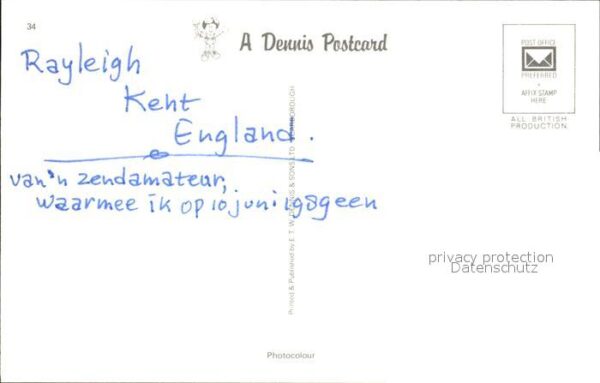 34
A Dennis Postcard
POST OFFICE
PREFERRED
AFFIX STAMP
HERE
ALL BRITISH
PRODUCTION.
Rayleigh
Keht
England.
van'n zendamateur,
waarmee ik op 10 juni
privacy protection
Datenschutz
Printed & Published by E. T. W. DENNIS & SONS LTD SCARBOROUGH
Photocolour